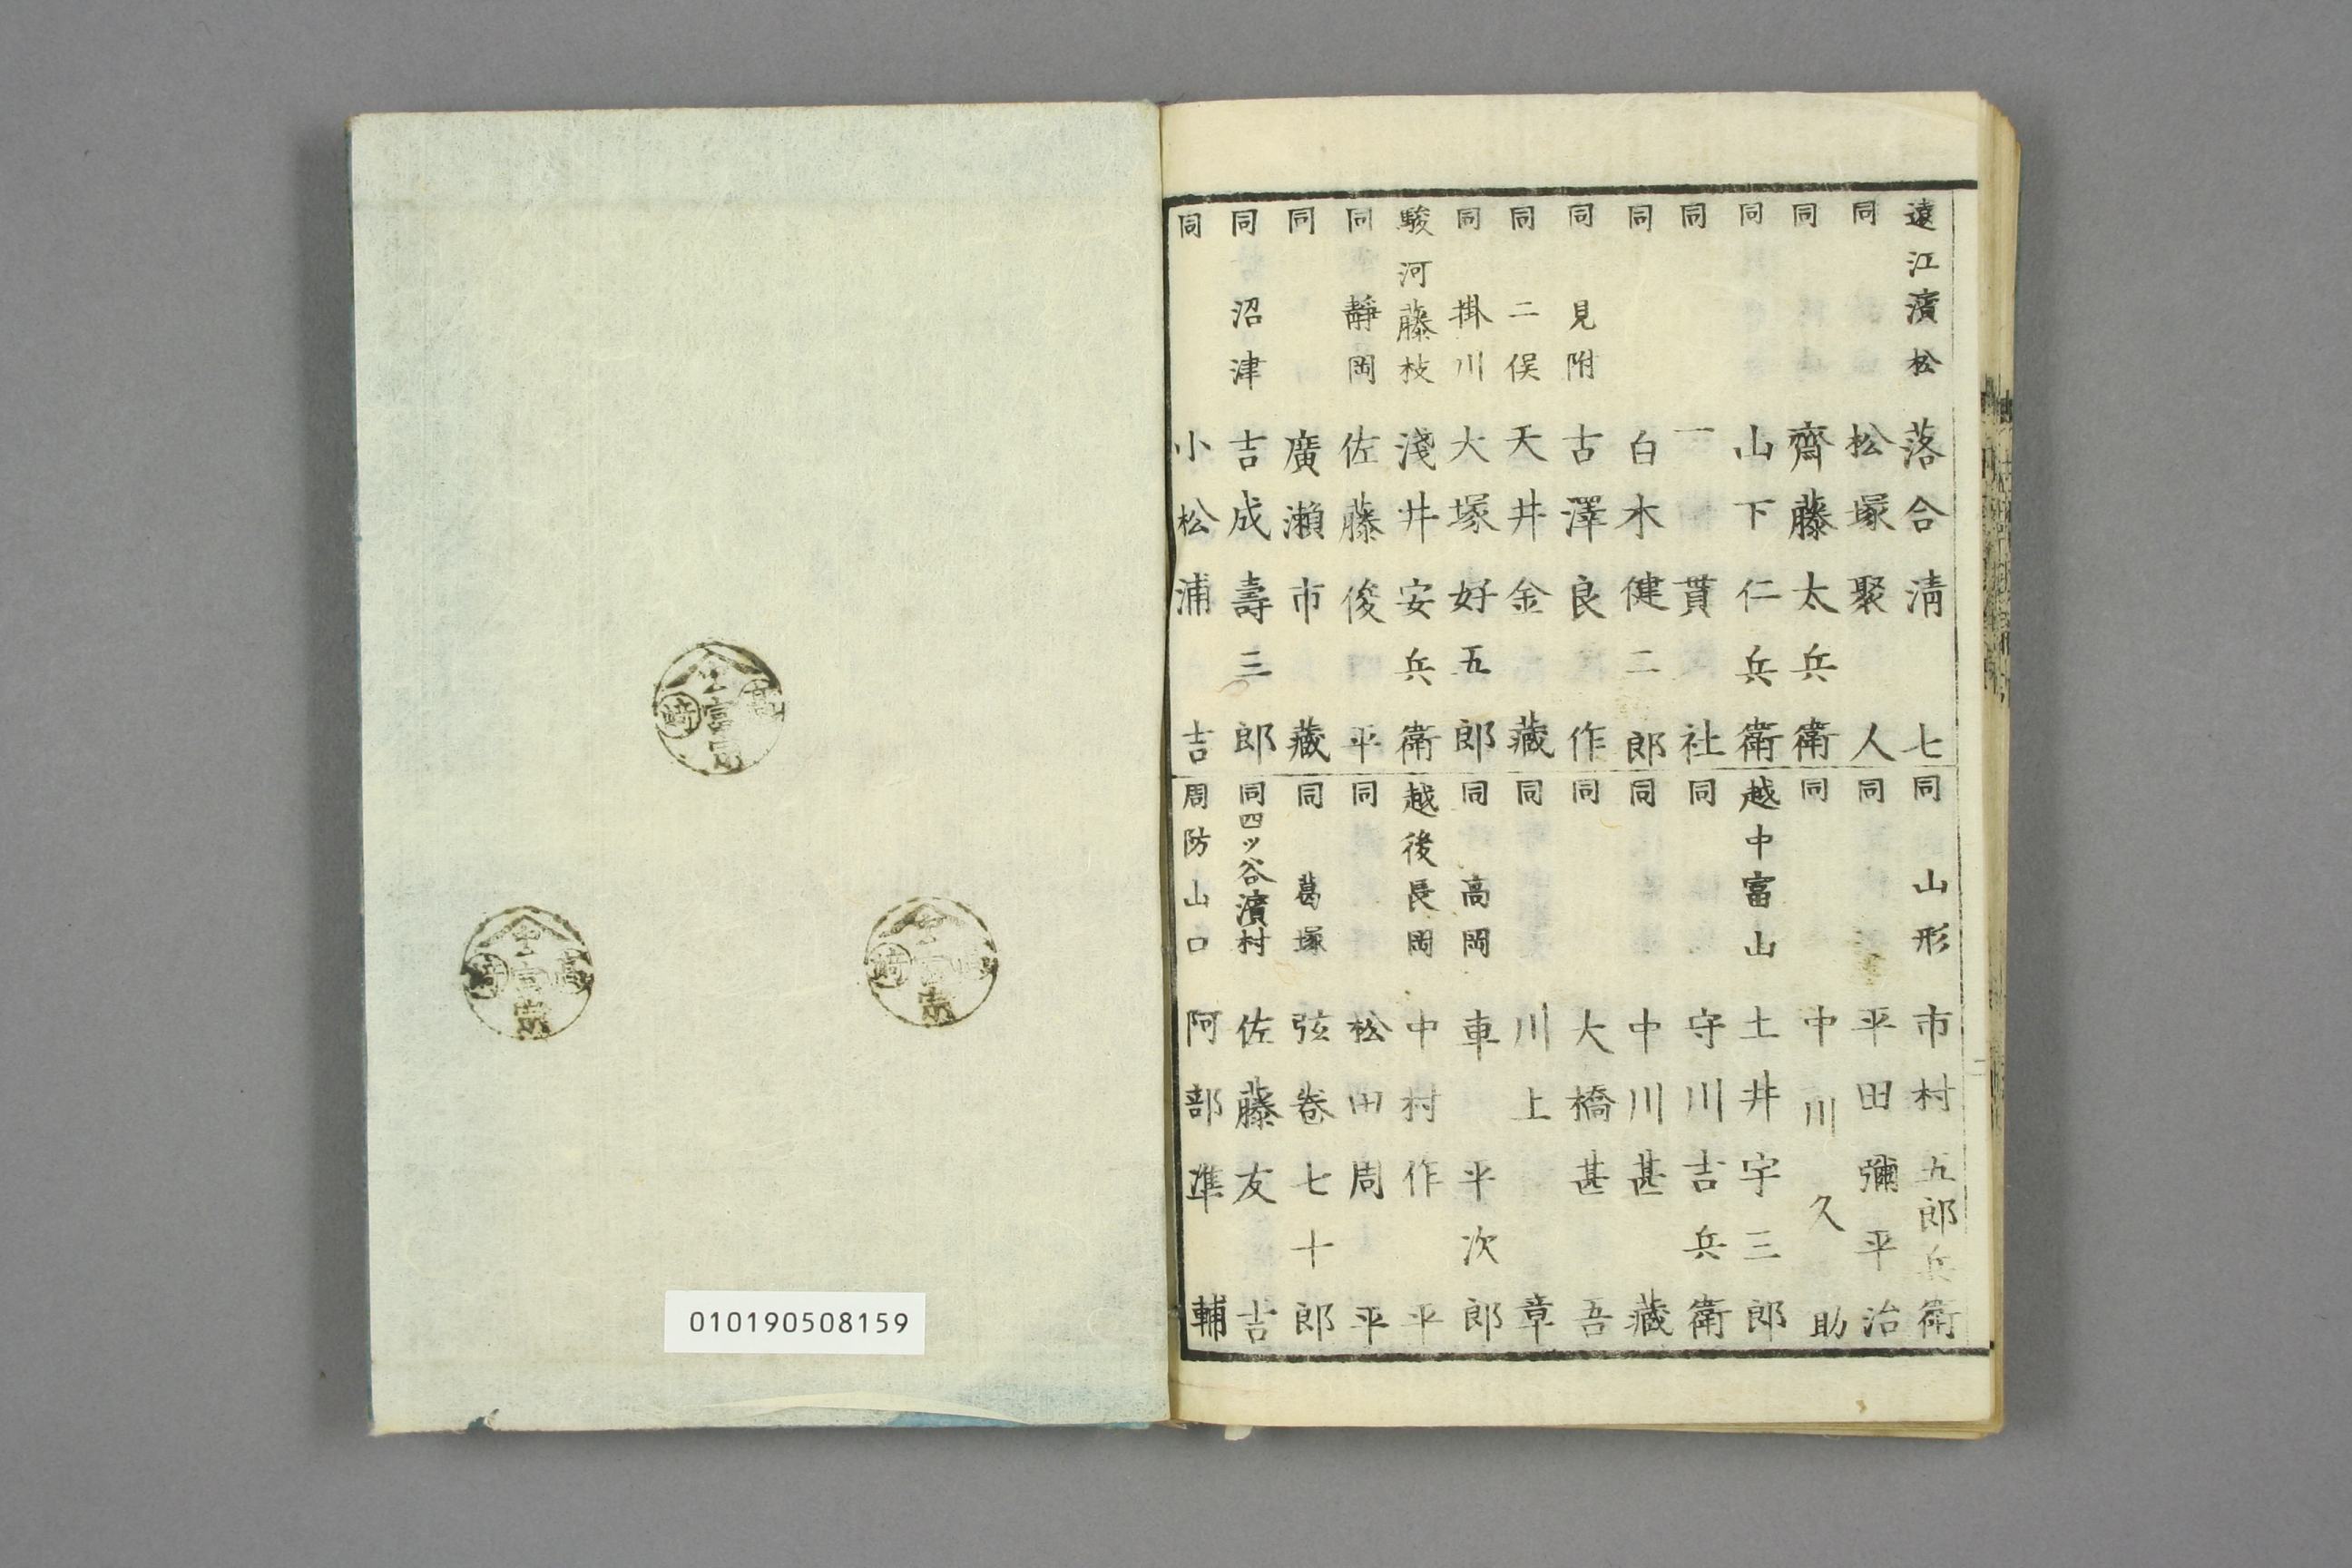 遠江濱松 落合清七
同 松塚聚人
同 齋藤太兵衛
同 山下仁兵衛
同 一貫社
同 白木健二郎
同 見附 古澤良作
同 二俣 天井金藏
同 掛川 大塚好五郎
駿河藤枝 淺井安兵衛
同 靜岡 佐藤俊平
同 廣瀬市藏
同 沼津 吉成壽三郎
同 小松浦吉
同 山形 市村五郎兵衛
同 平田彌平治
同 中川久助
越中富山 土井宇三郎
同 守川吉兵衛
同 中川甚藏
同 大橋甚吾
同 川上章
同 高岡 車平次郎
越後長岡 中村作平
同 松田周平
同 葛塚 弦巻七十郎
同四ッ谷濱村 佐藤友吉
周防山口 阿部準輔
高
崎
010190508159